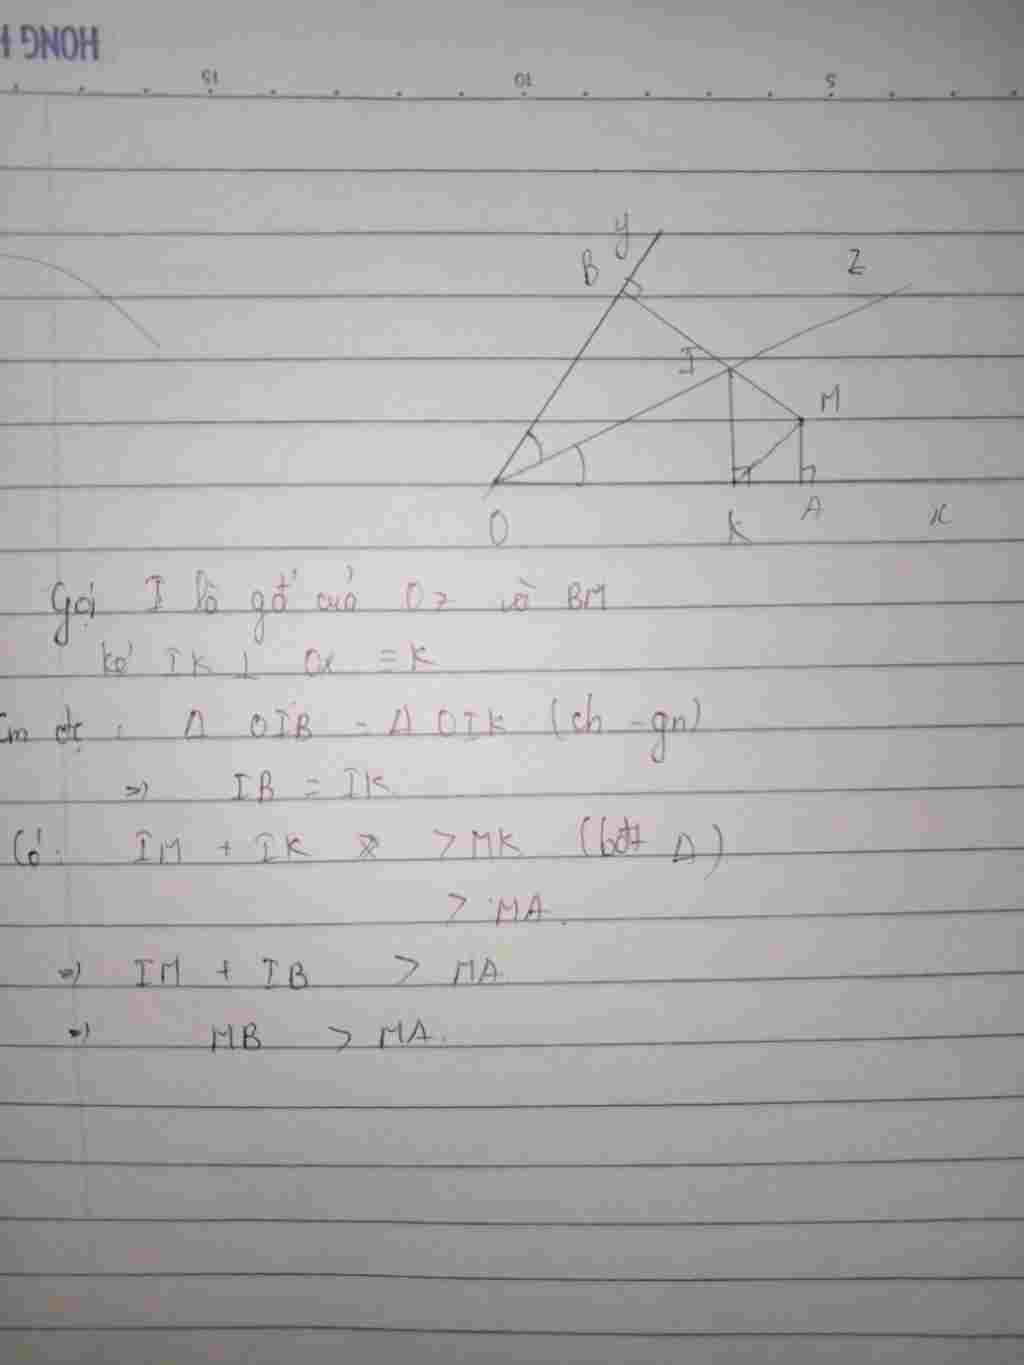 HONG H
15 10 5
y
B
z
I
M
O
K
A
x
Gọi I là gđ' của Oz và BM
kẻ IK ⊥ Ox = K
Cm đc : Δ OIB = Δ OIK (ch - gn)
=> IB = IK
Có: IM + IK > MK (bđt Δ)
> MA.
=> IM + IB > MA
=> MB > MA.